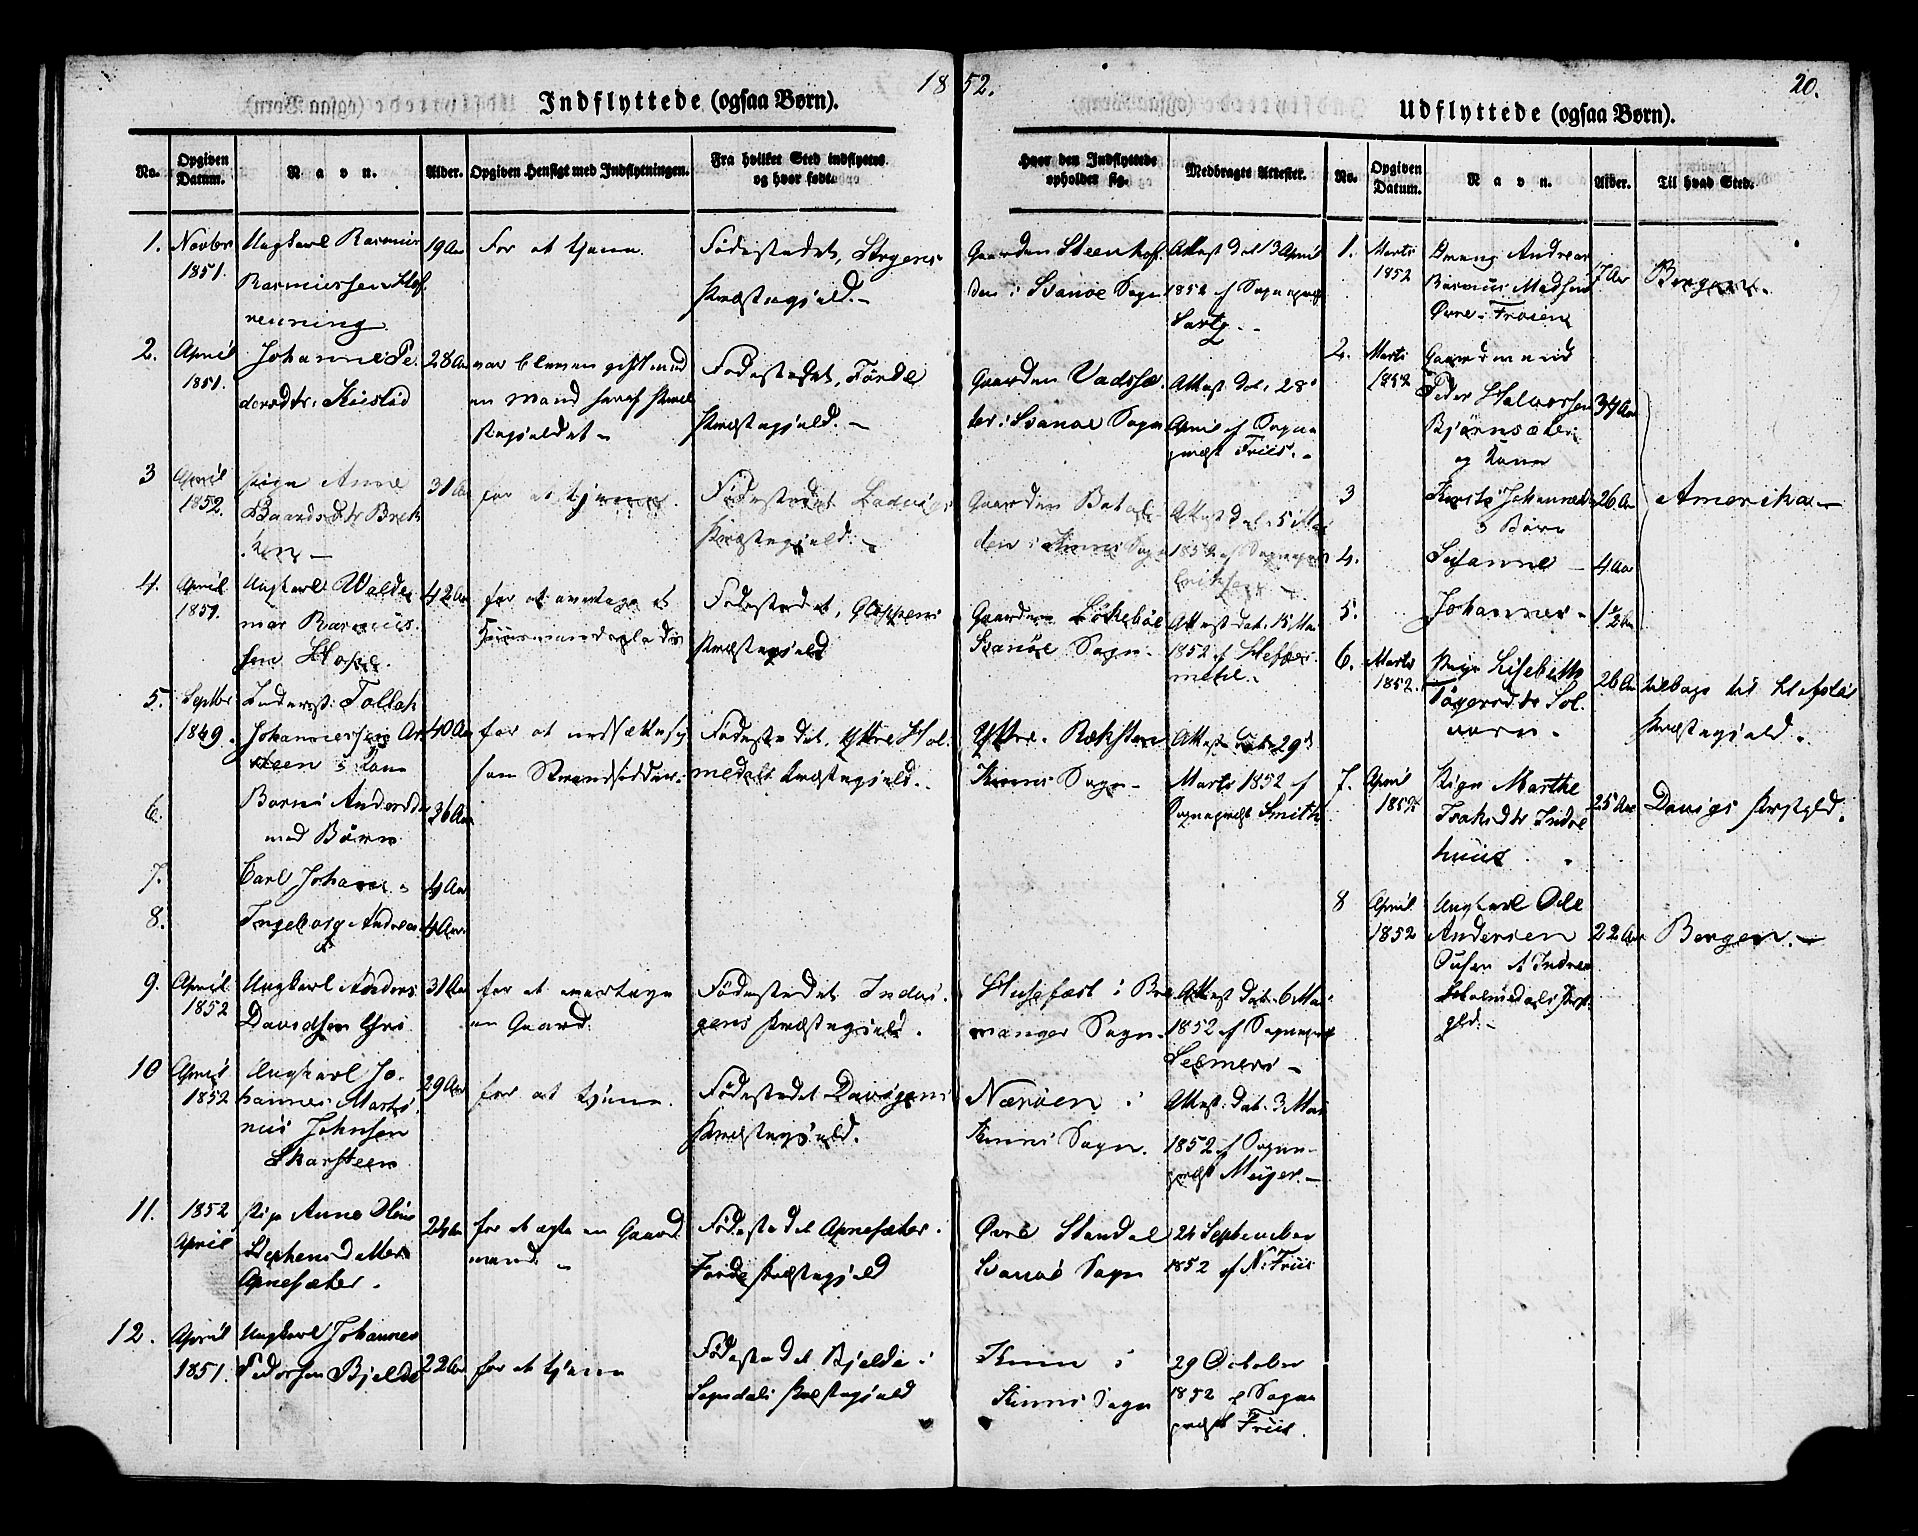 1852.
20.
Indflyttede (ogsaa Børn).
Udflyttede (ogsaa Børn).
No. Opgiven Datum. Navn. Alder. Opgiven Hensigt med Indflytningen. Fra hvilket Sted indflyttet og hvor født. Hvor den Indflyttede opholder sig. Medbragte Attester.
1. Novbr Ungkarl Rasmus 19 Aar For at tjene. Fødestedet, Gaarden Steenhof Attest dat 13 April
1851. Rasmussen Præstegjeld. den i Svanøe Sogn 1852 af Sognepræst
2. April Johanne Pe 28 Aar var bleven gift med Fødestedet, Førde Gaarden Vadsæ Attest dat. 28
1851. dersdtr. en Mand her af Præ Præstegjeld. ter i Svanøe Sogn April af Sogne
stegjeldet præst Friis.
3 April Pige Anne 31 Aar for at tjene Fødestedet Gaarden Batal Attest dat. 5 Mai
1852. Baardsdtr Brek Præstegjeld. den i Kinns Sogn 1852 af Sognepræst
ken Eriksen
4. April Ungkarl Walde 42 Aar for at overtage et Fødestedet, Gloppens Gaarden Løkebøe Attest dat. 15 Mai
1851. mar Rasmus Huusmandsplads Præstegjeld Svanøe Sogn 1852 af
sen
5. Septbr Tollak 40 Aar for at nedsætte sig Fødestedet, Ytre Hol Yttre Rekstien Attest dat. 29
1849. Johannessen som Strandsidder. medals Præstegjeld. Kinns Sogn Marts 1852 af
steen Kone Sognepræst Smith
6. Andersdtr 36 Aar
med Børn
7. Carl Johan 4 Aar
8. Ingeborg Andrea 4 Aar
9. April Ungkarl Anders 31 Aar for at overtage Fødestedet Indvi Husefæst i Bre Attest dat. 6 Mai
1852 Davidsen en Gaard. gens Præstegjeld. manger Sogn 1852 af Sognepræst
10 April Ungkarl Jo 29 Aar for at tjene. Fødestedet Davigens Nærøen i Attest. dat. 3 Mai
1852 hannes Marti Præstegjeld. Kinns Sogn. 1852 af Sogne
nus Johnsen præst Meyer.
Skarsteen
11. 1852 Pige Anne 24 Aar for at ægte en Gaard Fødestedet Apnesæter Øvre Standal 24 September
April Stephensdatter mand. Førde Præstegjeld Svanøe Sogn 1852 af N. Friis
Apnesæter.
12. April Ungkarl Johannes 22 Aar for at tjene Fødestedet Bjelde i Kinn i 29 October
1851. Pedersen Bjelde Præstegjeld Kinns Sogn 1852 af Sogne
præst Friis.
No. Opgiven Datum. Navn. Alder. Til hvad Sted.
1. Marts Dreng Andreas 7 Aar Bergen.
1852 Rasmus Madsen
Øvre Frøien
2. Marts Gaardmand
1852 Peder Halvorsen 34 Aar
Bjørnsæter
og Kone
3 Johannesdtr 26 Aar Amerika
Børn
4. Susanne 4 Aar
5. Johannes 1½ Aar
6. Marts Pige Lisebeth 26 Aar tilbage til
1852. Sol Præstegjeld.
7. April Pige Marthe 25 Aar Davigs Præstgjld.
1852 Isaksdtr Indre
huus
8 April Ungkarl Ole
1852 Andersen 22 Aar Bergen.
Indre
Holmedals Præst
gld.